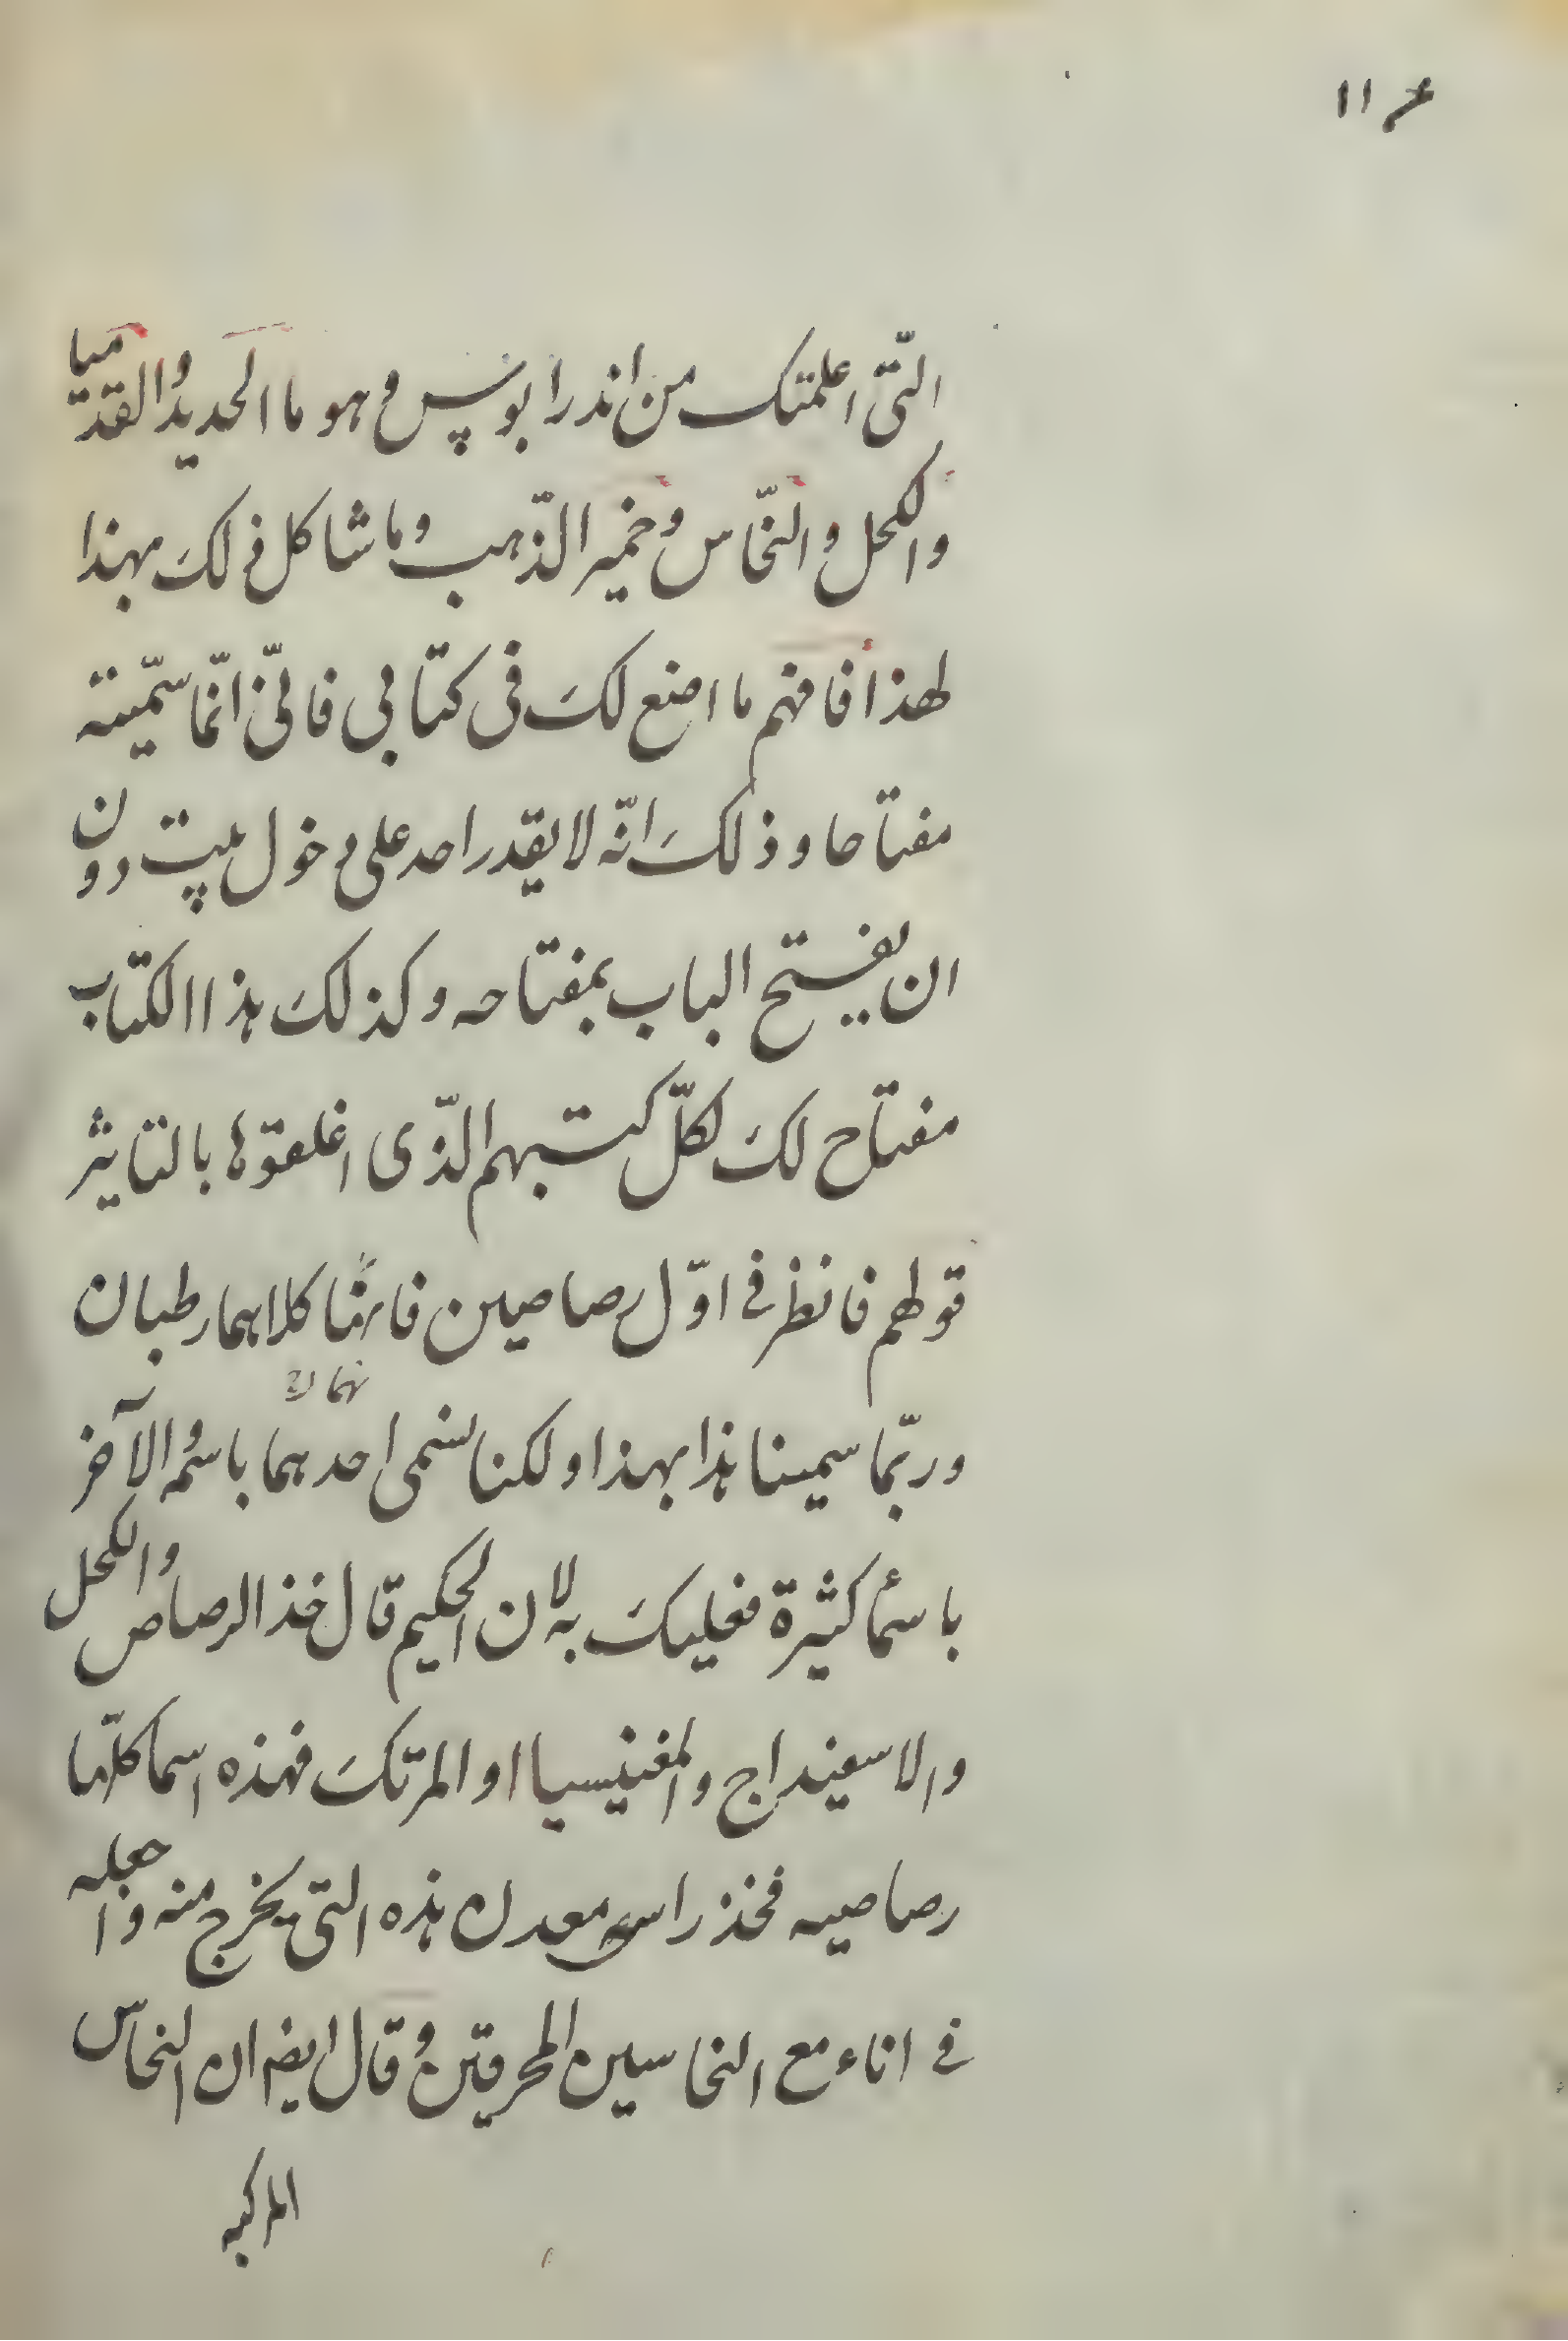 التّى اعلمتك من اندرابوس وهو ما الحديد والقدميا
والكحل والنّحاس وخمير الذّهب وما شاكل ذلك بهذا
لهذا فافهم ما اضع لك فى كتابى فانّى انّما سمّيته
مفتاحا وذلك انّه لا يقدر احد على دخول بيت دون
ان يفتح الباب بمفتاحه وكذلك هذا الكتاب
مفتاح لك لكلّ كتبهم الذّى اغلقوها بالتاثير
قولهم فانظر فى اوّل رصاصين فانهما كلاهما رطبان
وربّما سمينا هذا بهذا ولكنا نسمى احدهما باسم الآخر
باسما كثيرة فعليك به لان الحكيم قال خذ الرصاص والكحل
والاسفيداج والمغنيسيا او المرتك فهذه اسما كلّها
رصاصيه فخذ راس معدن هذه التى يخرج منه واجعله
فى اناء مع النحاسين المحرقين وقال ايضا ان النحاس
المركبه